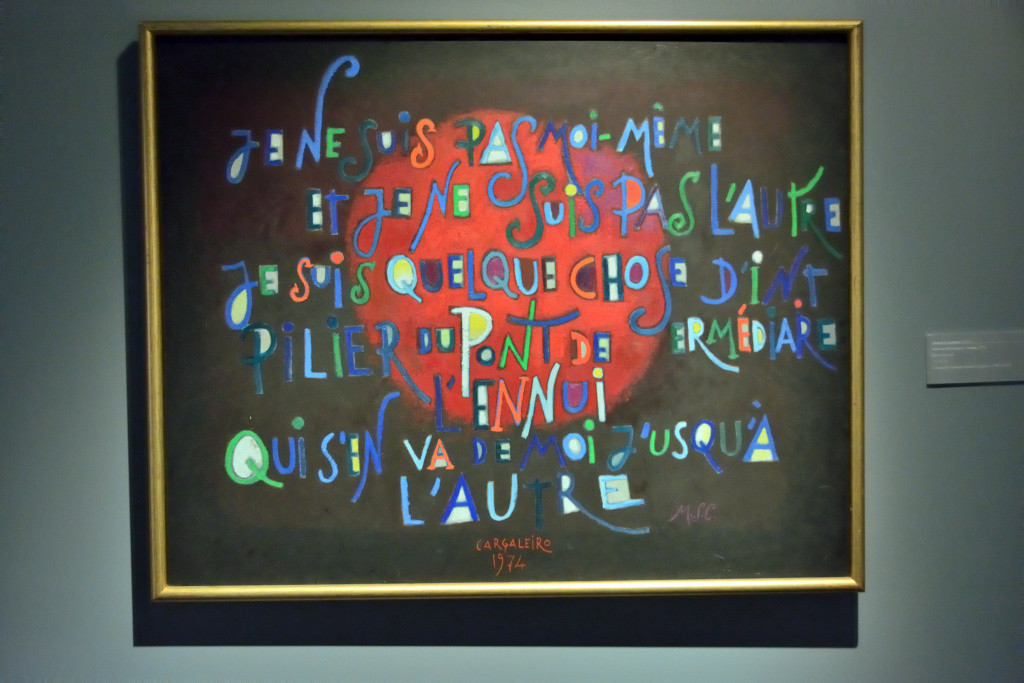 JE NE SUIS PAS MOI-MÊME
ET JE NE SUIS PAS L'AUTRE
JE SUIS QUELQUE CHOSE D'INT
PILIER DU PONT DE ERMÉDIAIRE
L'ENNUI
QUI S'EN VA DE MOI J'USQU'À
L'AUTRE
M.S.C
CARGALEIRO
1974